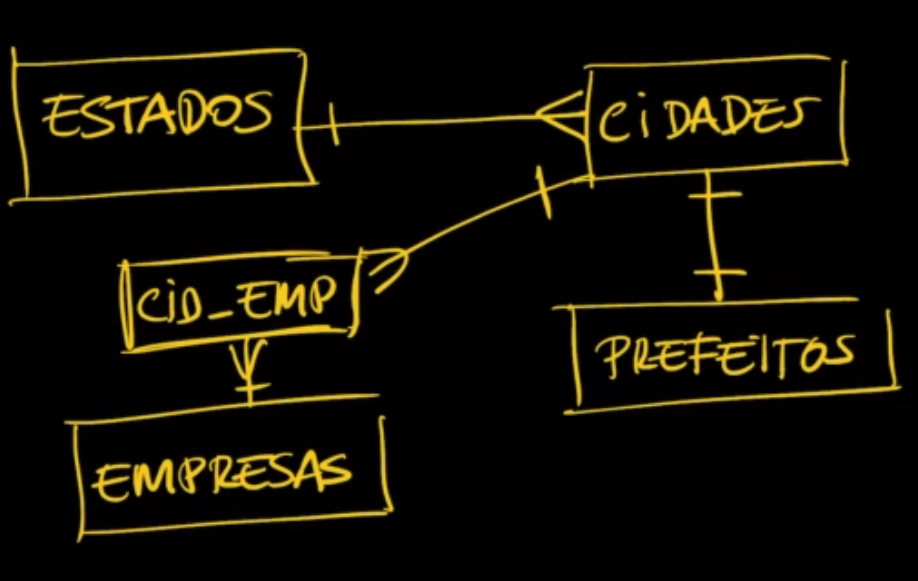 ESTADOS
CiDADES
CiD_EMP
PREFEITOS
EMPRESAS